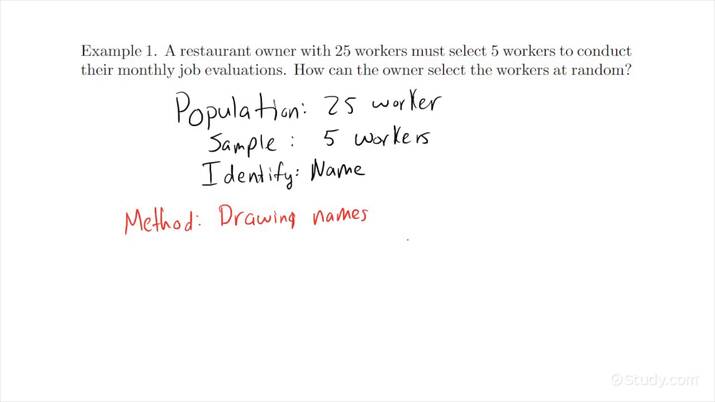 Example 1. A restaurant owner with 25 workers must select 5 workers to conduct
their monthly job evaluations. How can the owner select the workers at random?
Population: 25 worker
Sample: 5 workers
Identify: Name
Method: Drawing names
©Study.com